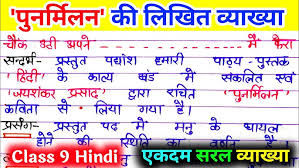 'पुनर्मिलन' की लिखित व्याख्या
चौंक उठी अपने ———— में फेरा
सन्दर्भ- प्रस्तुत पद्यांश हमारी पाठ्य-पुस्तक
'हिन्दी' के काव्य खंड में संकलित एवं
'जयशंकर प्रसाद' द्वारा रचित 'पुनर्मिलन'
कविता से लिया गया है।
प्रसंग- प्रस्तुत पद में मनु के घायल
होने की स्थिति का वर्णन है
Class 9 Hindi एकदम सरल व्याख्या